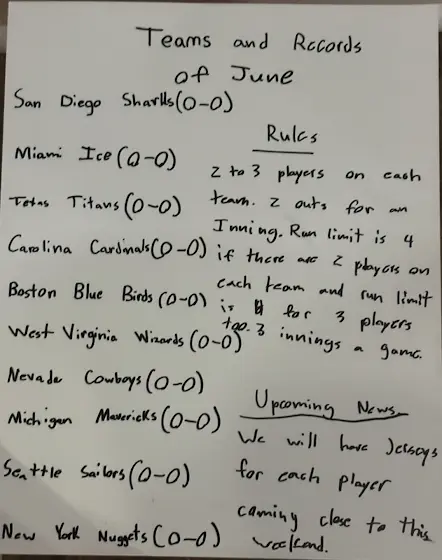 Teams and Records
of June
San Diego Sharks(0-0)
Miami Ice(0-0)
Texas Titans(0-0)
Carolina Cardinals(0-0)
Boston Blue Birds(0-0)
West Virginia Wizards(0-0)
Nevada Cowboys(0-0)
Michigan Mavericks(0-0)
Seattle Sailors(0-0)
New York Nuggets(0-0)
Rules
2 to 3 players on each
team. 2 outs for an
Inning. Run limit is 4
if there are 2 players on
each team and run limit
is 4 for 3 players
too. 3 innings a game.
Upcoming News.
We will have Jerseys
for each player
coming close to this
weekend.